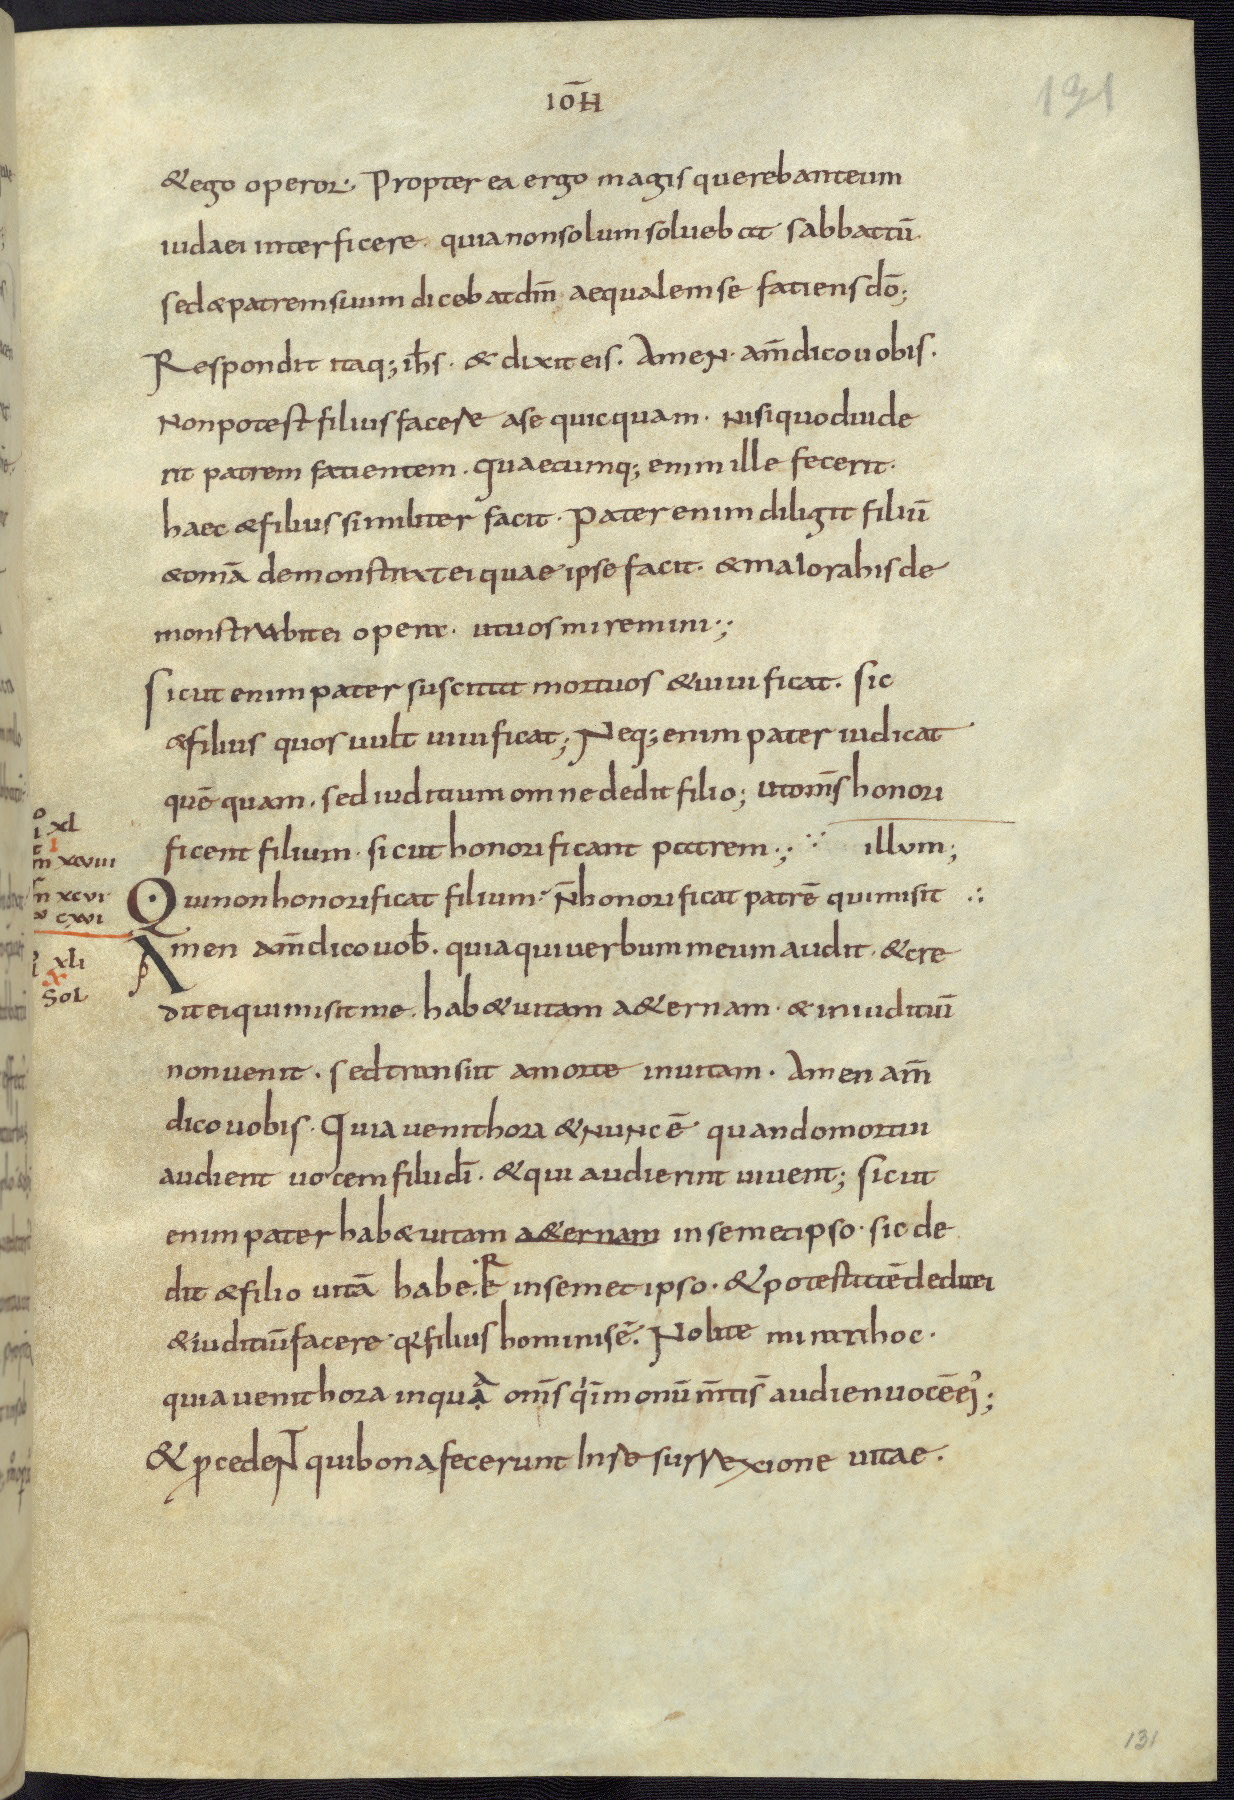 IOH̄
131
& ego operor; Propter ea ergo magis querebant eum
iudaei interficere. quia non solum soluebat sabbatū.
sed & patrem suum dicebat dm̄ aequalem se fatiens dō;
Respondit itaq; ih̄s. & dixit eis. Amen. am̄ dico uobis.
Non potest filius facere a se quicquam. Nisi quod uide
rit patrem fatientem. quaecumq; enim ille fecerit.
haec & filius similiter facit. Pater enim diligit filiū
& omā demonstrat ei quae ipse facit. & maiora his de
monstrabit ei opera. ut uos miremini:;
Sicut enim pater suscitat mortuos & uiuificat. sic
& filius quos uult uiuificat; Neq; enim pater iudicat
quē quam. sed iuditium omne dedit filio; ut om̄s honori
ficent filium. sicut honorificant patrem:; ∵ illum;
Qui non honorificat filium. n̄ honorificat patrē qui misit ∴
Amen am̄ dico uob̄. quia qui uerbum meum audit. & cre
dit ei qui misit me. hab& uitam a&ernam. & in iuditiū
non uenit. sed transiit a morte in uitam. Amen am̄
dico uobis. Quia uenit hora & nunc ē quando mortui
audient uocem filii dī. & qui audierint uiuent; sicut
enim pater hab& uitam a&ernam in semetipso. sic de
dit & filio uitā habere in semetipso. & potestatē dedit ei
& iuditiū facere. q̄ filius hominis ē. Nolite mirari hoc.
quia uenit hora in qua om̄s q̄ in monūm̄tis audien uocē ej᾿;
& p̄cedenT qui bona fecerunt In resurrexione uitae.
xl
xcviii
xcvi
cxvi
xli
x
Sol
131